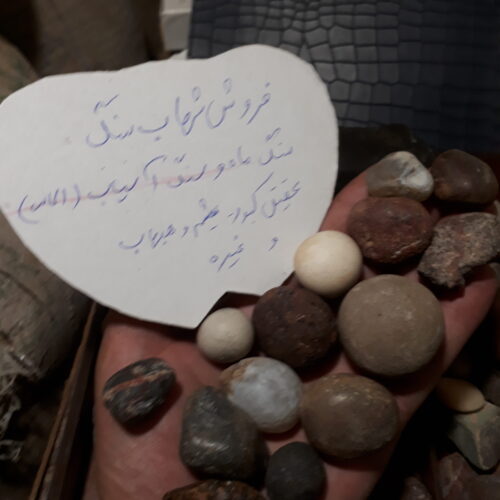 فروش شهاب سنگ
سنگ ماه و سنگ آسمانی (الماس)
عقیق کبود چشم و مهتاب
و غیره